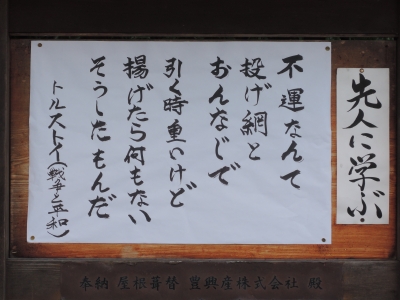 先人に学ぶ
不運なんて
投げ網と
おんなじで
引く時重いけど
揚げたら何もない
そうしたもんだ
トルストイ(戦争と平和)
奉納 屋根葺替 豊興産株式会社 殿